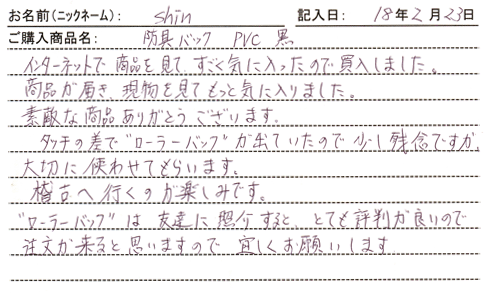 お名前(ニックネーム): shin 記入日: 18年2月23日
ご購入商品名: 防具バック PVC 黒
インターネットで商品を見て、すごく気に入ったので買入しました。
商品が届き、現物を見てもっと気に入りました。
素敵な商品ありがとうございます。
タッチの差で"ローラーバッグ"が出ていたので少し残念ですが、
大切に使わせてもらいます。
稽古へ行くのが楽しみです。
"ローラーバッグ"は友達に照介すると、とても評判が良いので
注文が来ると思いますので宜しくお願いします